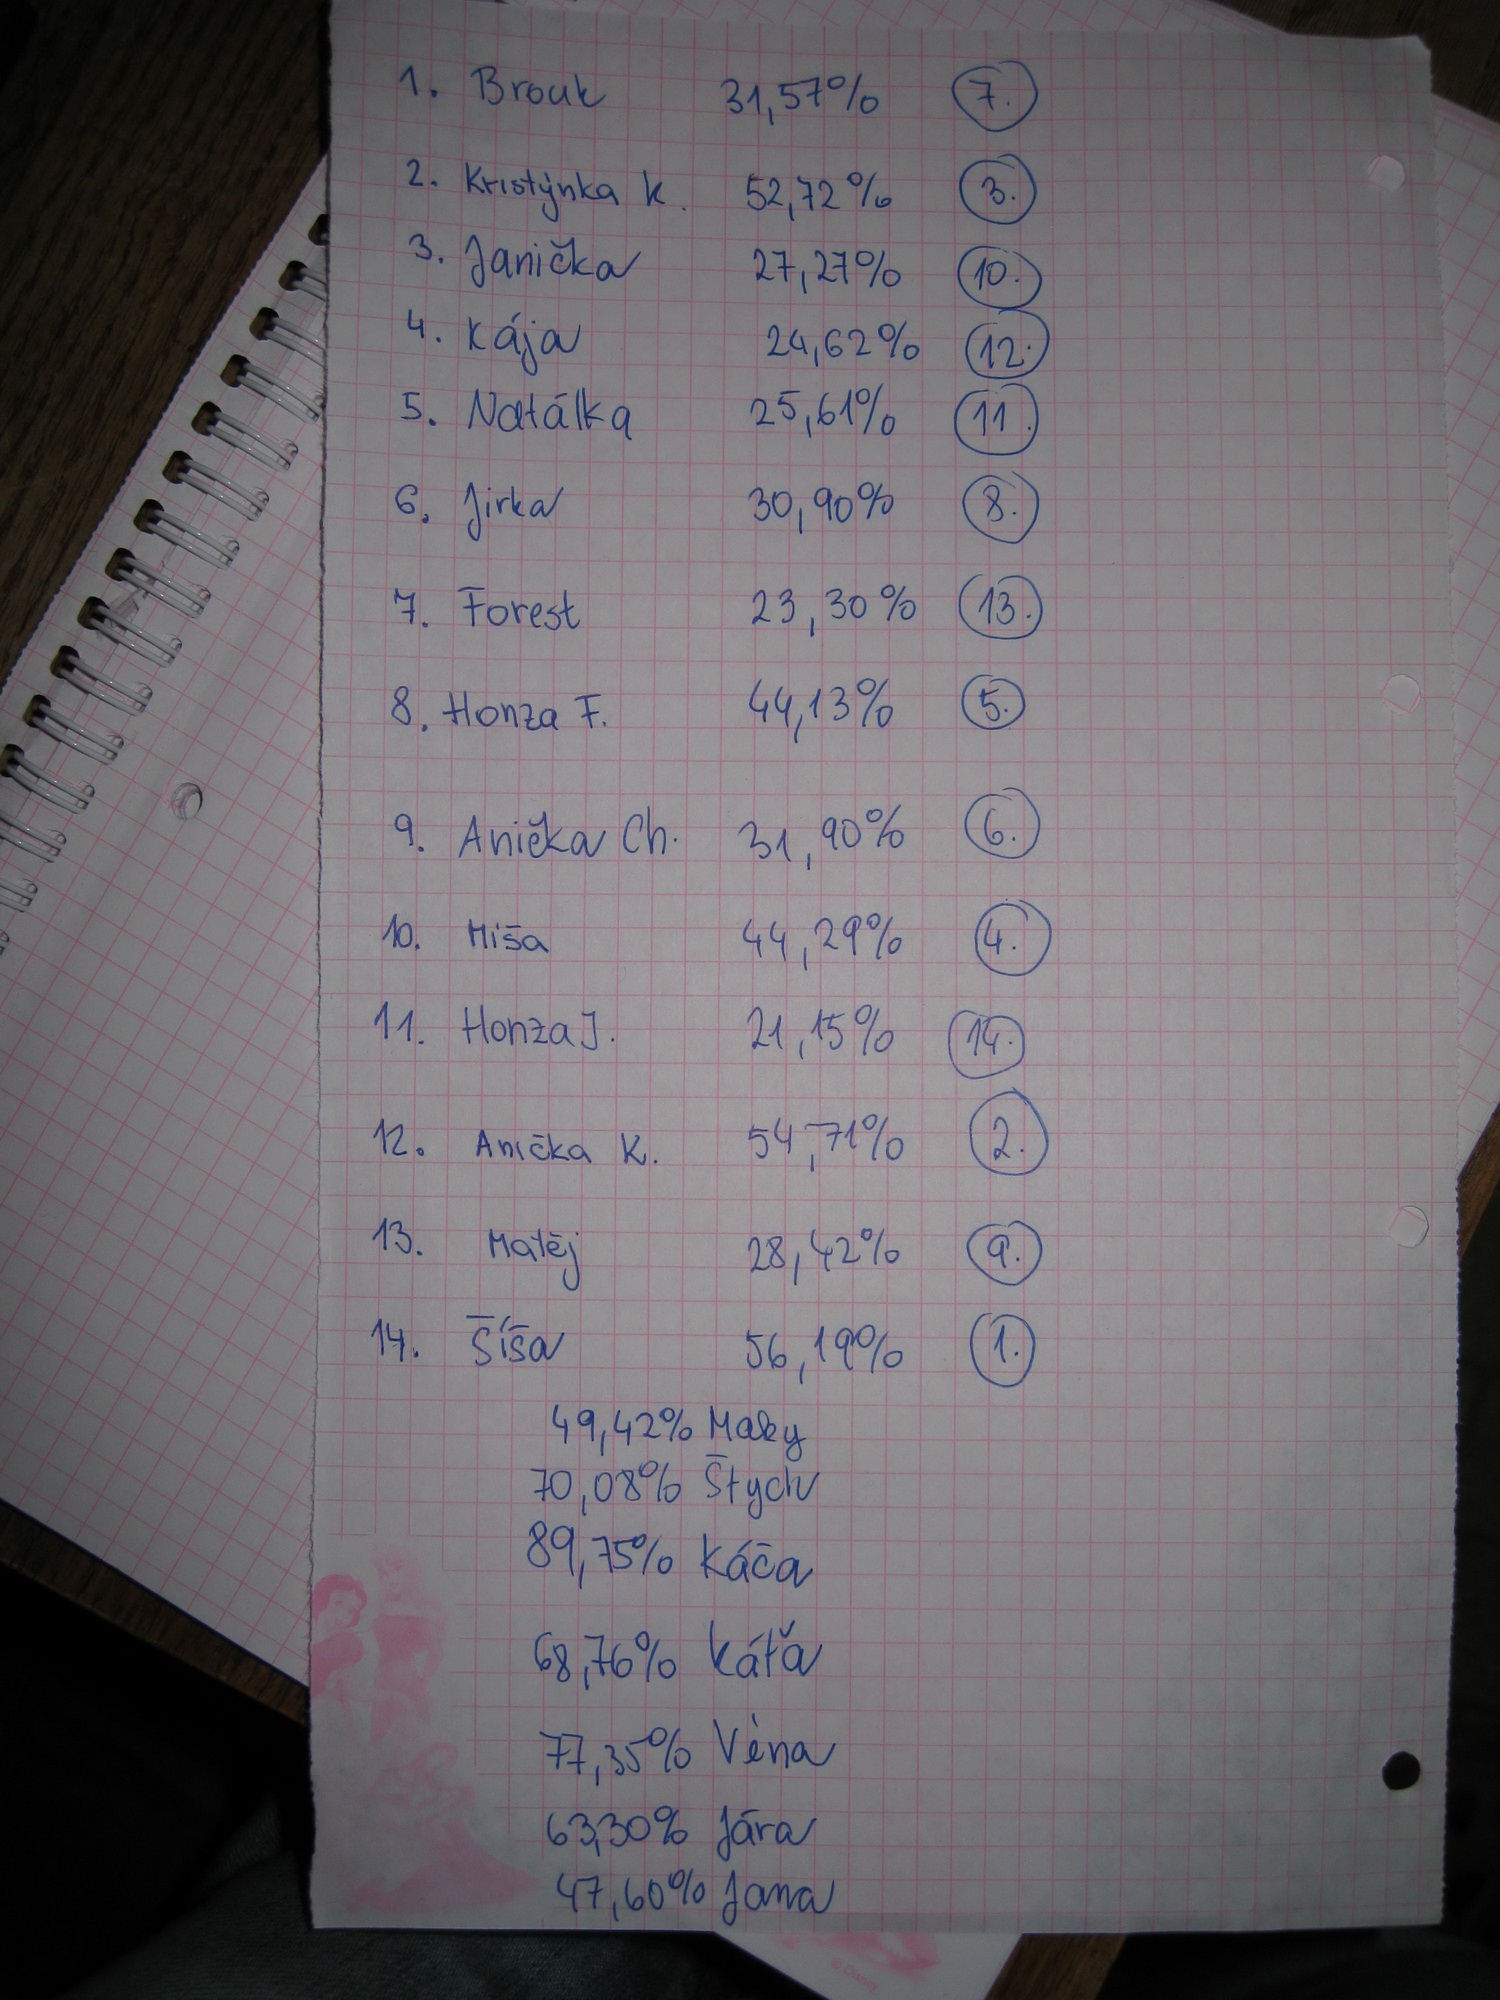 1. Brouk 31,57% 7.
2. Kristýnka K. 52,72% 3.
3. Janička 27,27% 10.
4. Kája 24,62% 12.
5. Natálka 25,61% 11.
6. Jirka 30,90% 8.
7. Forest 23,30% 13.
8. Honza F. 44,13% 5.
9. Anička Ch. 31,90% 6.
10. Míša 44,29% 4.
11. Honza J. 21,15% 14.
12. Anička K. 54,71% 2.
13. Matěj 28,42% 9.
14. Šíša 56,19% 1.
49,42% Maky
70,08% Štych
89,75% Káča
68,76% Káťa
77,35% Véna
63,30% Jára
47,60% Jana
© Disney